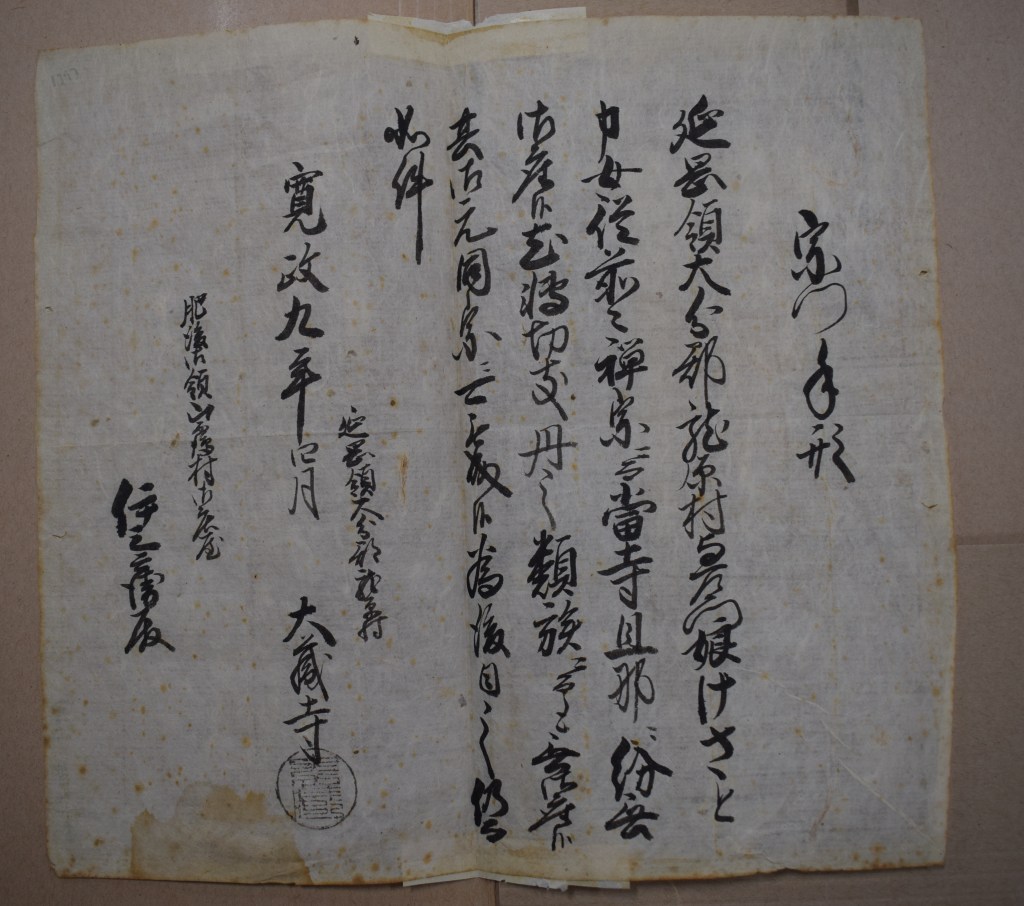 宗門手形
延岡領大分郡龍原村与右衛門娘けさと
申女従前々禅宗ニ而当寺旦那ニ紛無
御座候尤轉切支丹之類族ニ而も無御座候
其御元同宗ニ可被成候為後日之仍而
如件
延岡領大分郡龍原村
寛政九年巳月 大蔵寺
肥後御領 村御庄屋
殿